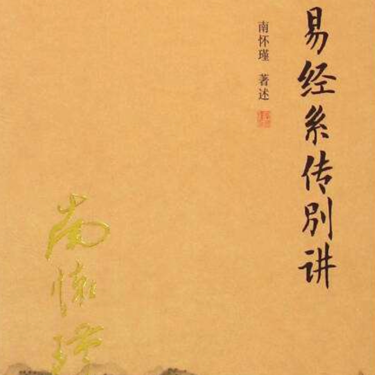 易经系传别讲
南怀瑾 著述
南怀瑾